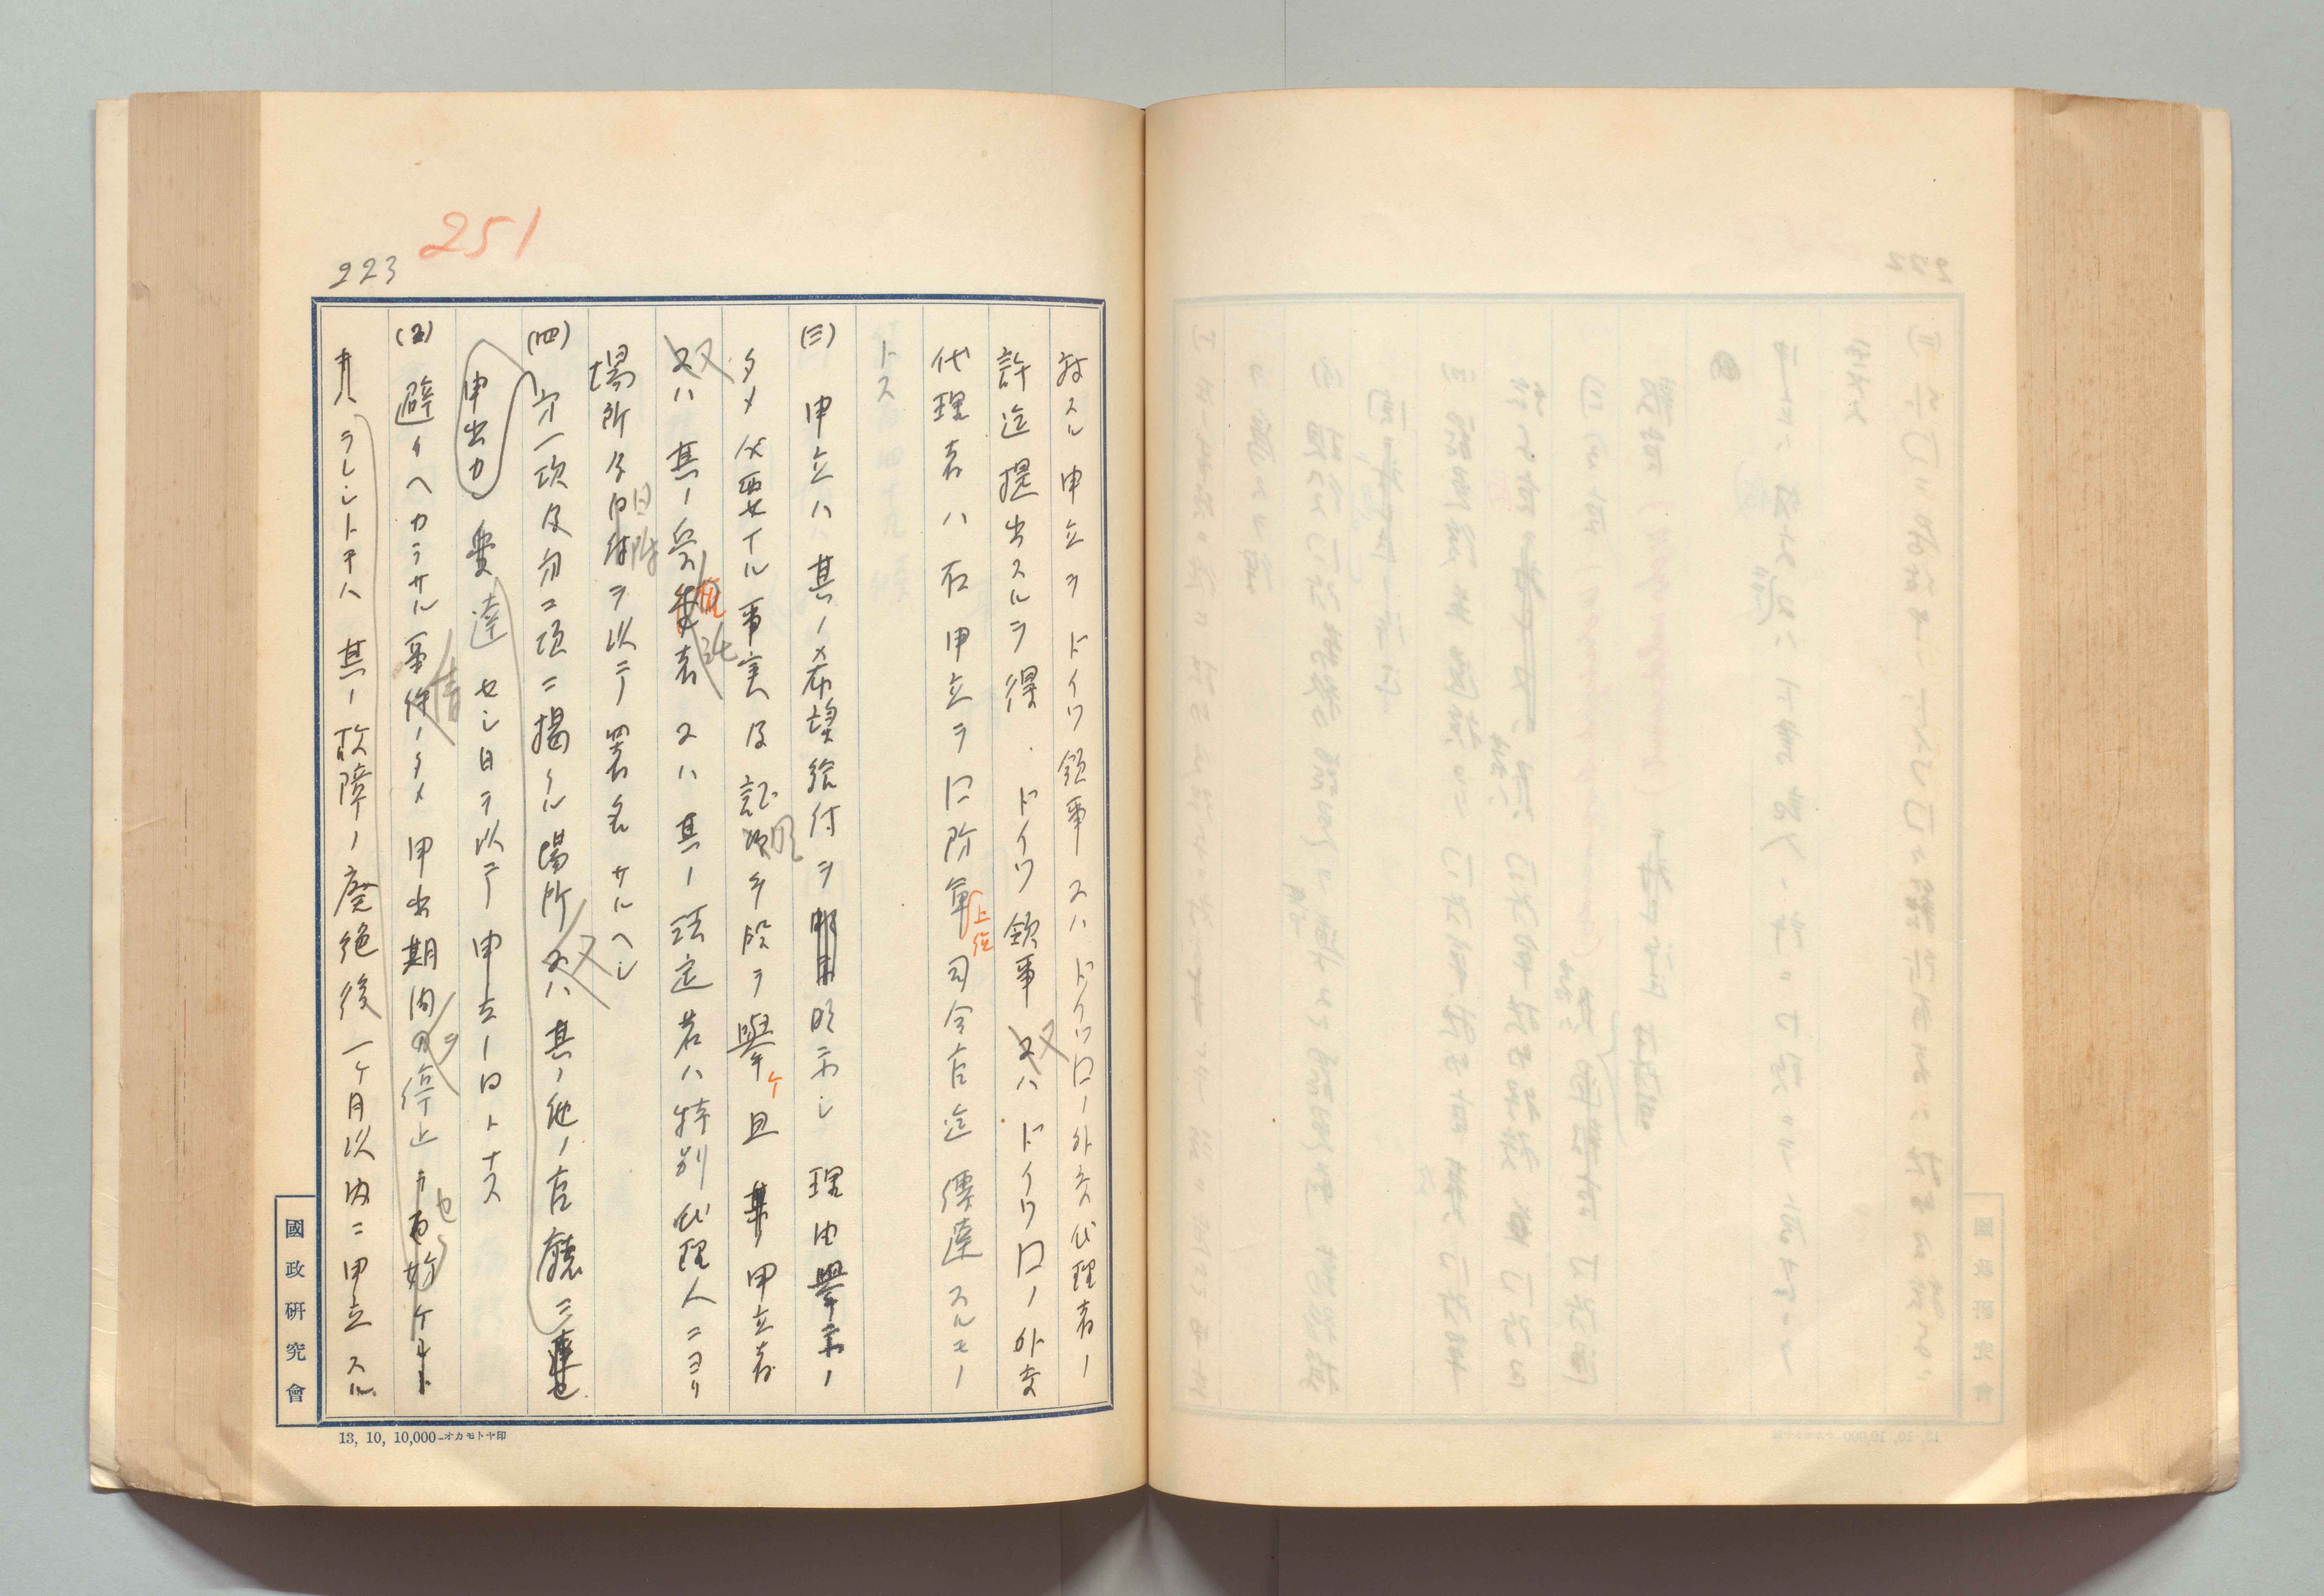 251
223
スル申立ヲドイツ領事又ハドイツ口ノ外交代理者ノ
許迄提出スルヲ得.ドイツ領事又ハドイツ口ノ外交
代理者ハ右申立ヲ口防軍上位司令官迄傳達スルモノ
トス
(三) 申立ハ其ノ希望給付ヲ明示シ理由ノ
タメ必要ナル事実及証憑手段ヲ擧ケ且申立者
又ハ其ノ受託者又ハ其ノ法定若ハ特別代理人ニヨリ
場所及日附ヲ以テ署名サルヘシ
(四) 第一項及第二項ニ掲クル場所又ハ其ノ他ノ官廳ニ
申出カ到達セシ日ヲ以テ申立ノ日トナス
(五) 避クヘカラサル事情ノタメ申出期間ヲ停止セ
ラレシトキハ其ノ故障ノ廃絶後一ケ月以内ニ申立スル
國政研究會
13, 10, 10,000—オカモトヤ印